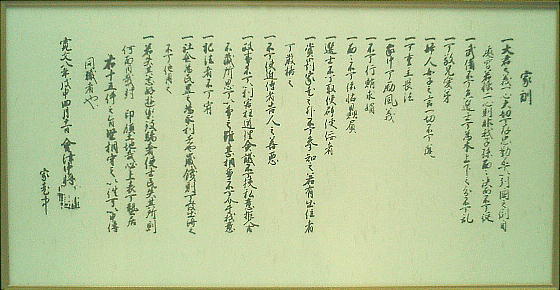 家訓
一大君之儀一心大切可存忠勤不可以列国之例自
処焉若懐二心則非我子孫面々決而不可従
一武備不可怠選士可為本上下之分不可乱
一可敬兄愛弟
一婦人女子之言一切不可聞
一可重主畏法
一家中可励風儀
一不可行賄求媚
一面々不可依怙贔屓
一選士不可取便辟便侫者
一賞罰家老之外不可参知之若有出位者
可厳格之
一不可使近侍者告人之善悪
一政事不可以利害枉道理僉議不可挟私意拒人言
不蔵所思可以争之雖甚相争不可介于我意
一犯法者不可宥
一社倉為民置之為永利者也歳饑則可発出済之
不可他用之
一若失其志好遊楽致驕奢使士民失其所則
何面目戴封印領土地哉必上表可蟄居
右十五件之旨堅相守之以往可申伝
同職者也
寛文八年戊申四月十一日 会津中将
家老中